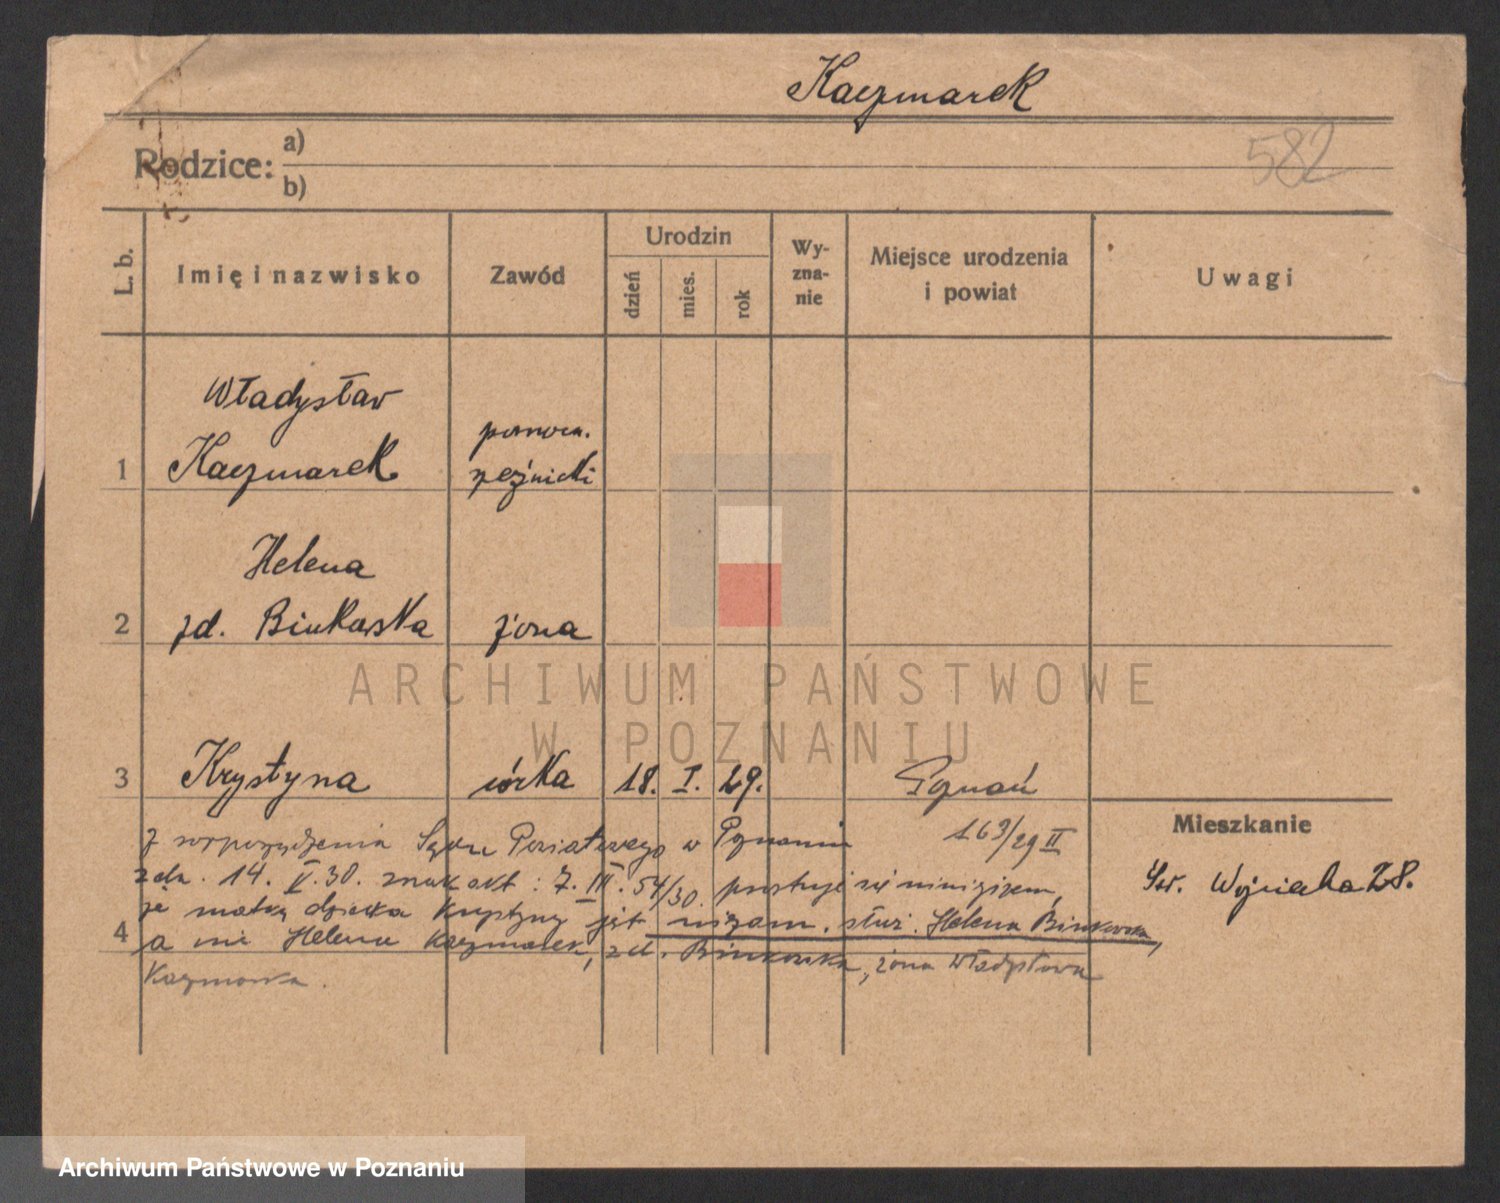 Kaczmarek
582
Rodzice: a)
b)
L. b.
Imię i nazwisko
Zawód
Urodzin
dzień
mies.
rok
Wy-
zna-
nie
Miejsce urodzenia
i powiat
Uwagi
Władysław
pomocn.
1 Kaczmarek rzeźnicki
Helena
2 zd. Binkowska żona
3 Krystyna córka 18. I. 29. Poznań
163/29 II
Mieszkanie
Św. Wojciecha 28.
Z rozporządzenia Sądu Powiatowego w Poznaniu
zdn. 14. V. 30. znak akt: 7. III. 54/30. prostuje się niniejszem,
że matką dziecka Krystyny jest niezam. służ. Helena Binkowska,
4 a nie Helena Kaczmarek, zd. Binkowska, żona Władysława
Kaczmarka.
ARCHIWUM PAŃSTWOWE
W POZNANIU
Archiwum Państwowe w Poznaniu